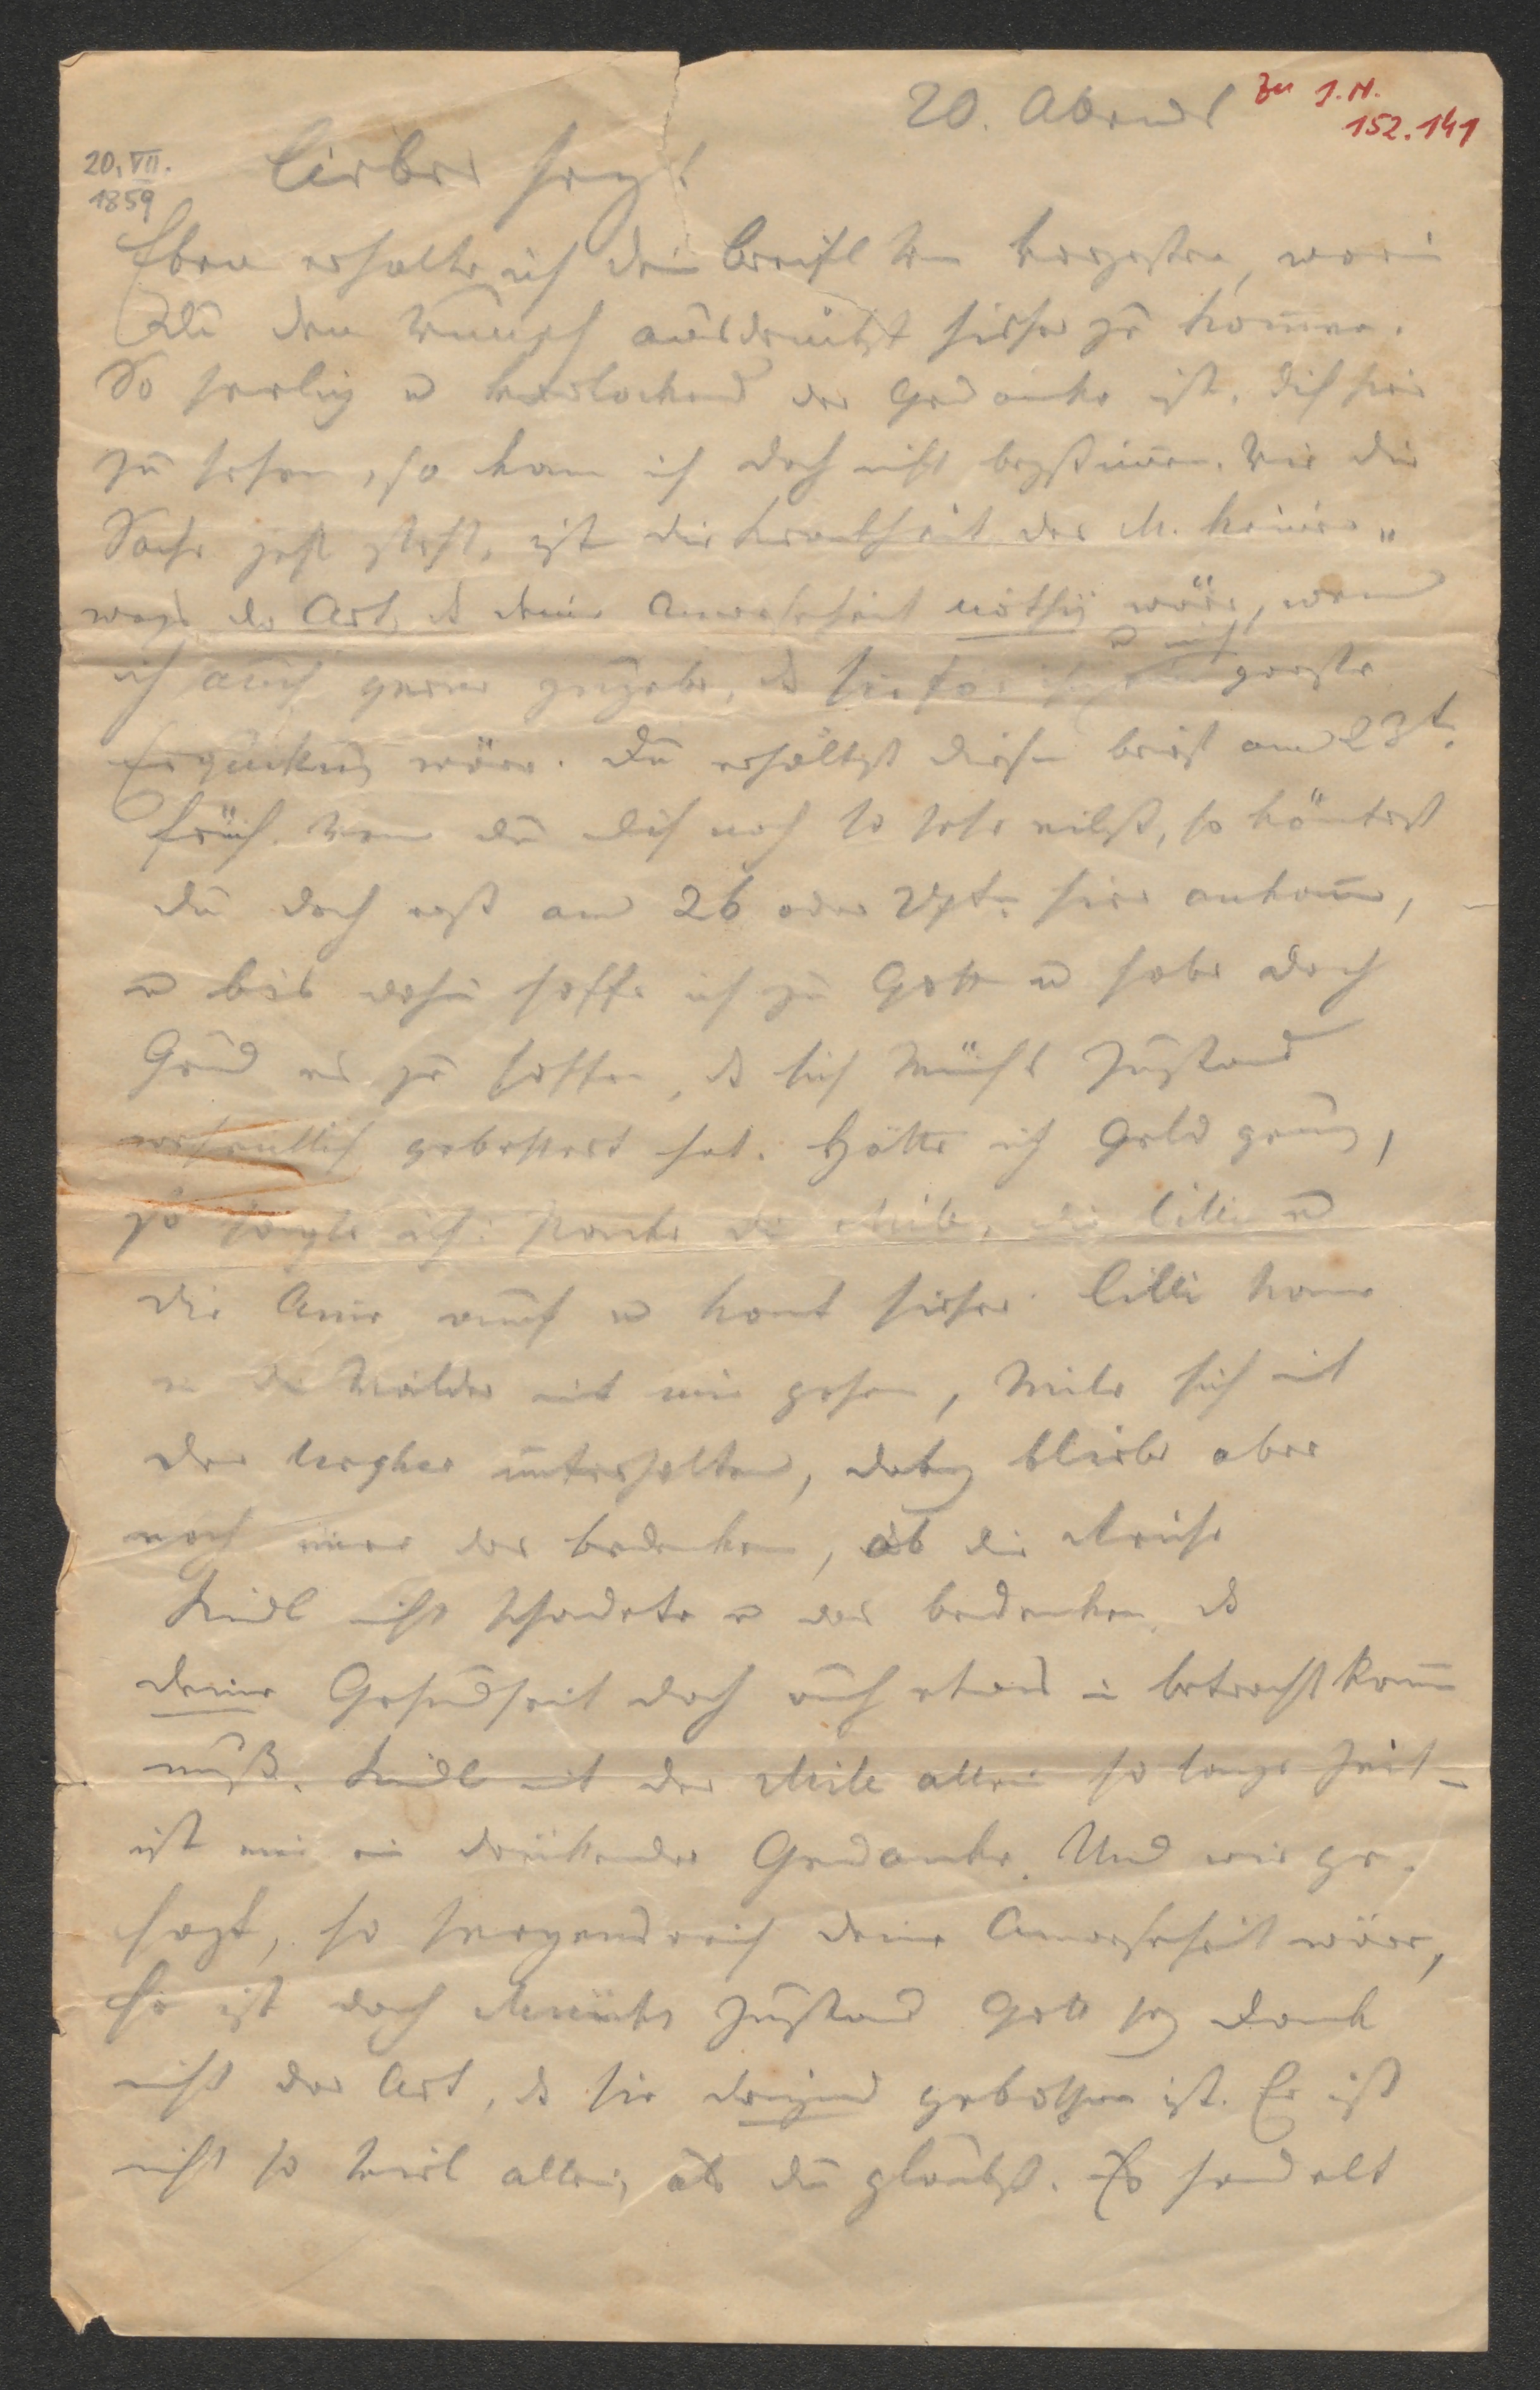 20. Abends
Zu I.N.
152.141
20. VII.
1859
Lieber
Eben erhalte ich dein Briefl von vorgestern, worin
Du den Wunsch ausdrückst hieher zu kom̄en.
So herrlich u verlockend der Gedanke ist, dich hier
zu sehen, so kann ich doch nicht beystim̄en. Wie die
Sache jetzt steht, ist die Krankheit der M. keines„
wegs der Art, dß deine Anwesenheit nöthig wäre, wenn
ich auch gerne zugebe, dß sie für u mich große
Erquickung wäre. Du erhältst diesen Brief am 23t.
früh. Wenn du dich noch so sehr eilst, so könntest
du doch erst am 26 oder 27ten hier ankom̄en,
u bis dahin hoffe ich zu Gott u habe doch
Grund es zu hoffen, dß sich Zustand
wesentlich gebessert hat. Hätte ich Geld genug,
so sagte ich: packe die Mile, die Lilli u
die auch u komt hieher. Lilli kann
in die Wälder mit mir gehen, Mile sich mit
der unterhalten, dabey bliebe aber
noch im̄er das Bedenken, ob die Reise
nicht schadete u das Bedenken, dß
deine Gesundheit doch auch etwas in Betracht kom̄en
muß. mit der Mile allein so lange Zeit –
ist mir ein drückender Gedanke. Und wie ge„
sagt, so segensreich deine Anwesenheit wäre,
so ist doch Zustand Gott sey Dank
nicht der Art, dß sie dringend gebothen ist. Er ist
nicht so viel allein, als du glaubst. Es handelt